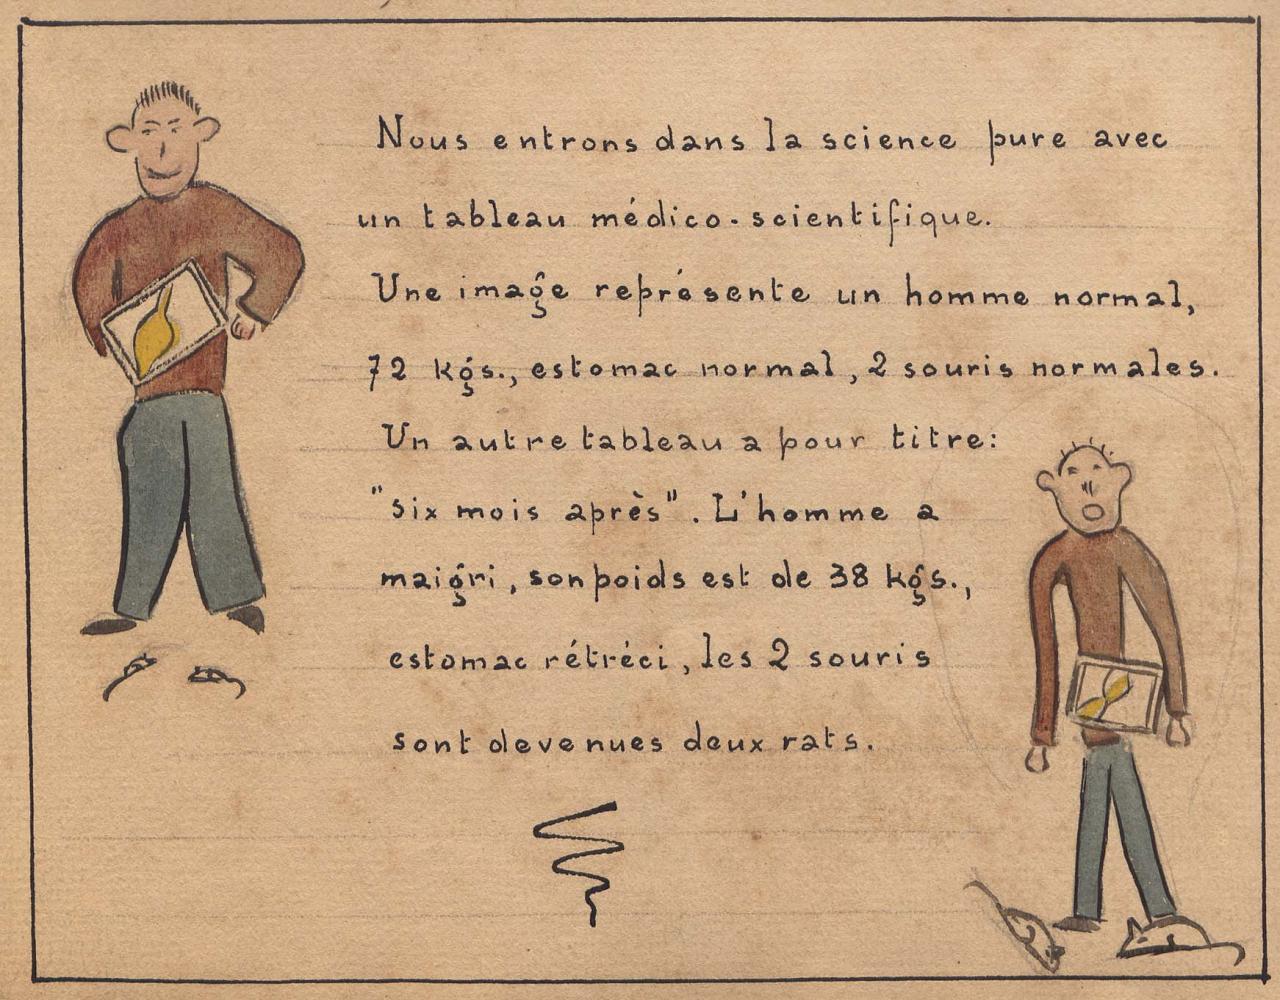 Nous entrons dans la science pure avec
un tableau médico-scientifique.
Une image représente un homme normal,
72 kgs., estomac normal, 2 souris normales.
Un autre tableau a pour titre:
"six mois après". L'homme a
maigri, son poids est de 38 kgs.,
estomac rétréci, les 2 souris
sont devenues deux rats.